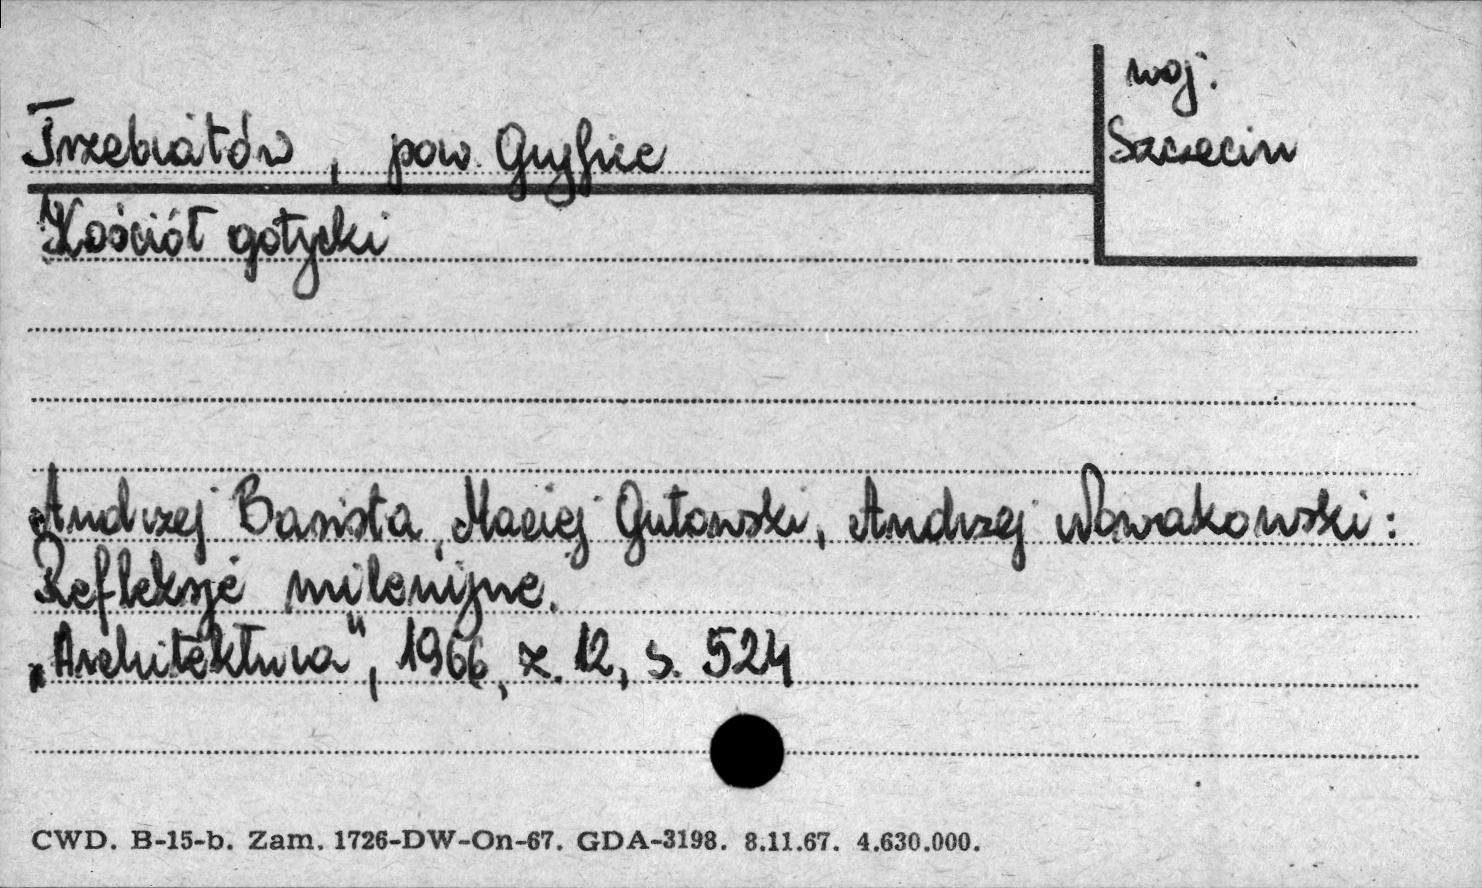 Trzebiatów, pow. Gryfice
woj.
Szczecin
Kościół gotycki
Andrzej Basista, Maciej Gutowski, Andrzej Nowakowski:
Refleksje milenijne.
„Architektura", 1966, z. 12, s. 524
CWD. B-15-b. Zam. 1726-DW-On-67. GDA-3198. 8.11.67. 4.630.000.